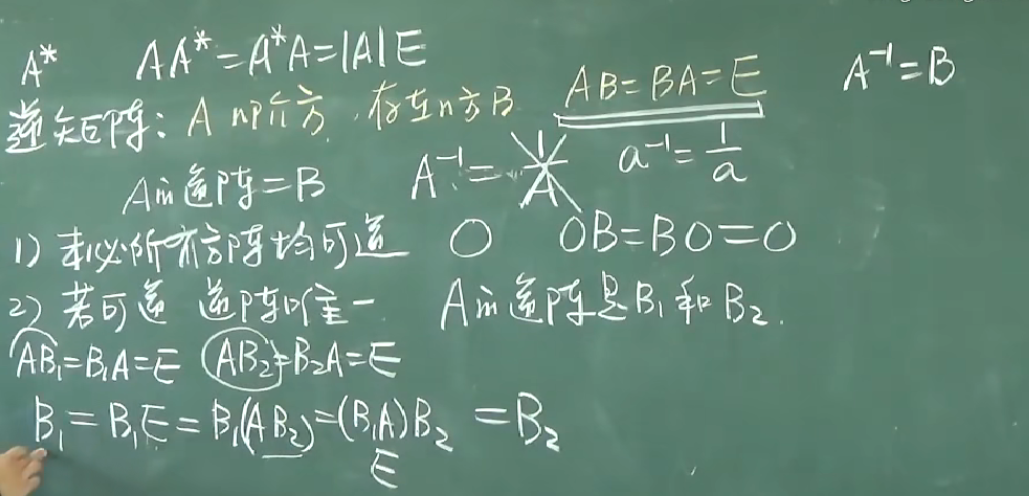 A* AA*=A*A=|A|E
逆矩阵: A n阶方, 存在n方B AB=BA=E A⁻¹=B
A的逆阵=B A⁻¹= 1/A a⁻¹=1/a
1) 未必所有方阵均可逆 O OB=BO=O
2) 若可逆 逆阵唯一 A的逆阵是B₁和B₂.
AB₁=B₁A=E AB₂=B₂A=E
B₁=B₁E=B₁(AB₂)=(B₁A)B₂=B₂
E